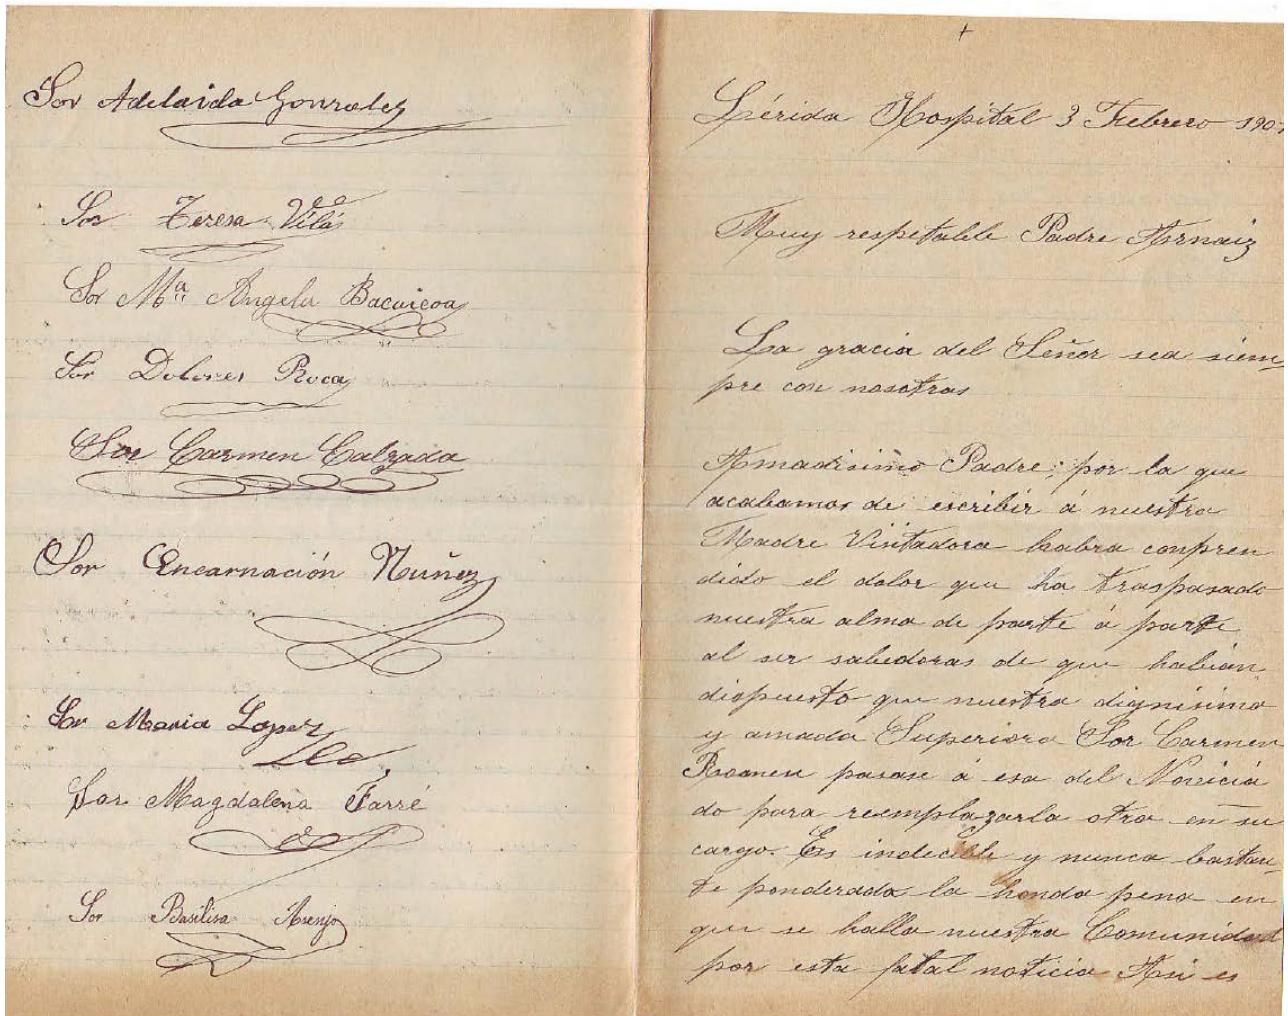 Sor Adelaida Gonzalez
Sor Teresa Vilá
Sor Mª Angela Bacaicoa
Sor Dolores Roca
Sor Carmen Calzada
Sor Encarnación Nuñez
Sor Maria Lopez
Sor Magdalena Farré
Sor Basilisa Asenjo
+
Lérida Hospital 3 Febrero 190
Muy respetable Padre Arnaiz
La gracia del Señor sea siem
pre con nosotras
Amadisimo Padre: por la que
acabamos de escribir á nuestra
Madre Visitadora habra conpren
dido el dolor que ha traspasado
nuestra alma de parte á parte
al ser sabedoras de que habian
dispuesto que nuestra dignisima
y amada Superiora Sor Carmen
pasase á esa del Novicia
do para reemplazarla otra en su
cargo. Es indecible y nunca bastan
te ponderada la honda pena en
que se halla nuestra Comunidad
por esta fatal noticia Asi es